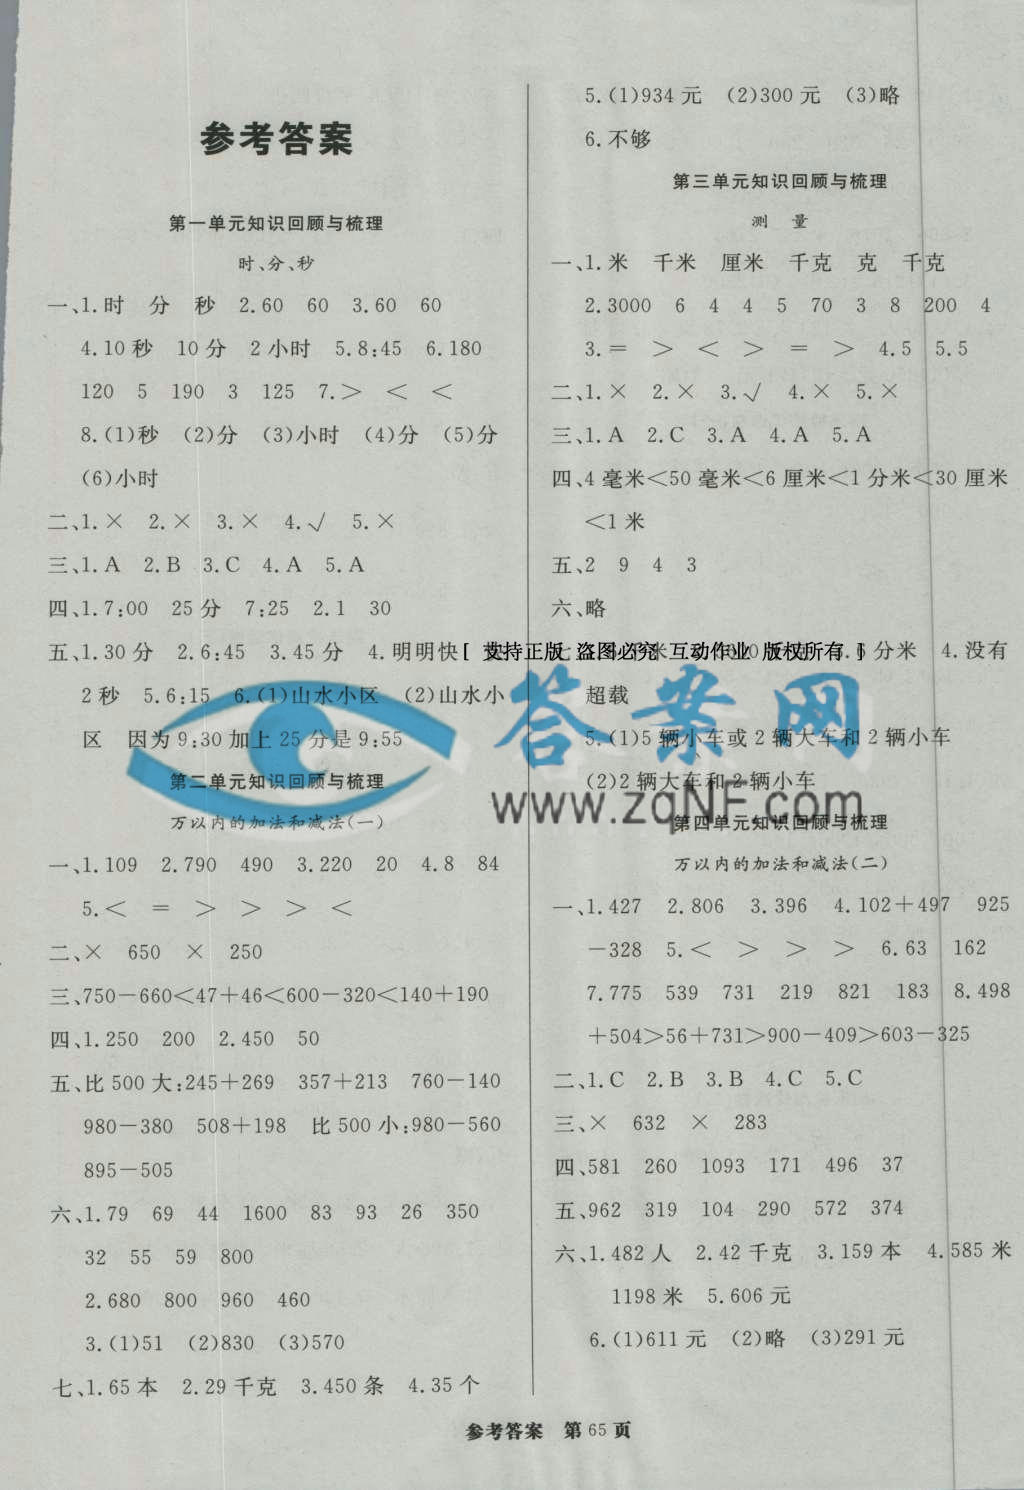 参考答案
第一单元知识回顾与梳理
时、分、秒
一、1.时 分 秒 2.60 60 3.60 60
4.10秒 10分 2小时 5.8:45 6.180
120 5 190 3 125 7.> < <
8.(1)秒 (2)分 (3)小时 (4)分 (5)分
(6)小时
二、1.× 2.× 3.× 4.√ 5.×
三、1.A 2.B 3.C 4.A 5.A
四、1.7:00 25分 7:25 2.1 30
五、1.30分 2.6:45 3.45分 4.明明快 快
2秒 5.6:15 6.(1)山水小区 (2)山水小
区 因为9:30加上25分是9:55
第二单元知识回顾与梳理
万以内的加法和减法(一)
一、1.109 2.790 490 3.220 20 4.8 84
5.< = > > > <
二、× 650 × 250
三、750-660<47+46<600-320<140+190
四、1.250 200 2.450 50
五、比500大:245+269 357+213 760-140
980-380 508+198 比500小:980-560
895-505
六、1.79 69 44 1600 83 93 26 350
32 55 59 800
2.680 800 960 460
3.(1)51 (2)830 (3)570
七、1.65本 2.29千克 3.450条 4.35个
5.(1)934元 (2)300元 (3)略
6.不够
第三单元知识回顾与梳理
测 量
一、1.米 千米 厘米 千克 克 千克
2.3000 6 4 4 5 70 3 8 200 4
3.= > < > = > 4.5 5.5
二、1.× 2.× 3.√ 4.× 5.×
三、1.A 2.C 3.A 4.A 5.A
四、4毫米<50毫米<6厘米<1分米<30厘米
<1米
五、2 9 4 3
六、略
[ 支持正版 盗图必究 互动作业 版权所有 ]
七、 6分米 4.没有
超载
5.(1)5辆小车或2辆大车和2辆小车
(2)2辆大车和2辆小车
答案网
www.zqNF.com
第四单元知识回顾与梳理
万以内的加法和减法(二)
一、1.427 2.806 3.396 4.102+497 925
-328 5.< > > > 6.63 162
7.775 539 731 219 821 183 8.498
+504>56+731>900-409>603-325
二、1.C 2.B 3.B 4.C 5.C
三、× 632 × 283
四、581 260 1093 171 496 37
五、962 319 104 290 572 374
六、1.482人 2.42千克 3.159本 4.585米
1198米 5.606元
6.(1)611元 (2)略 (3)291元
参考答案 第65页